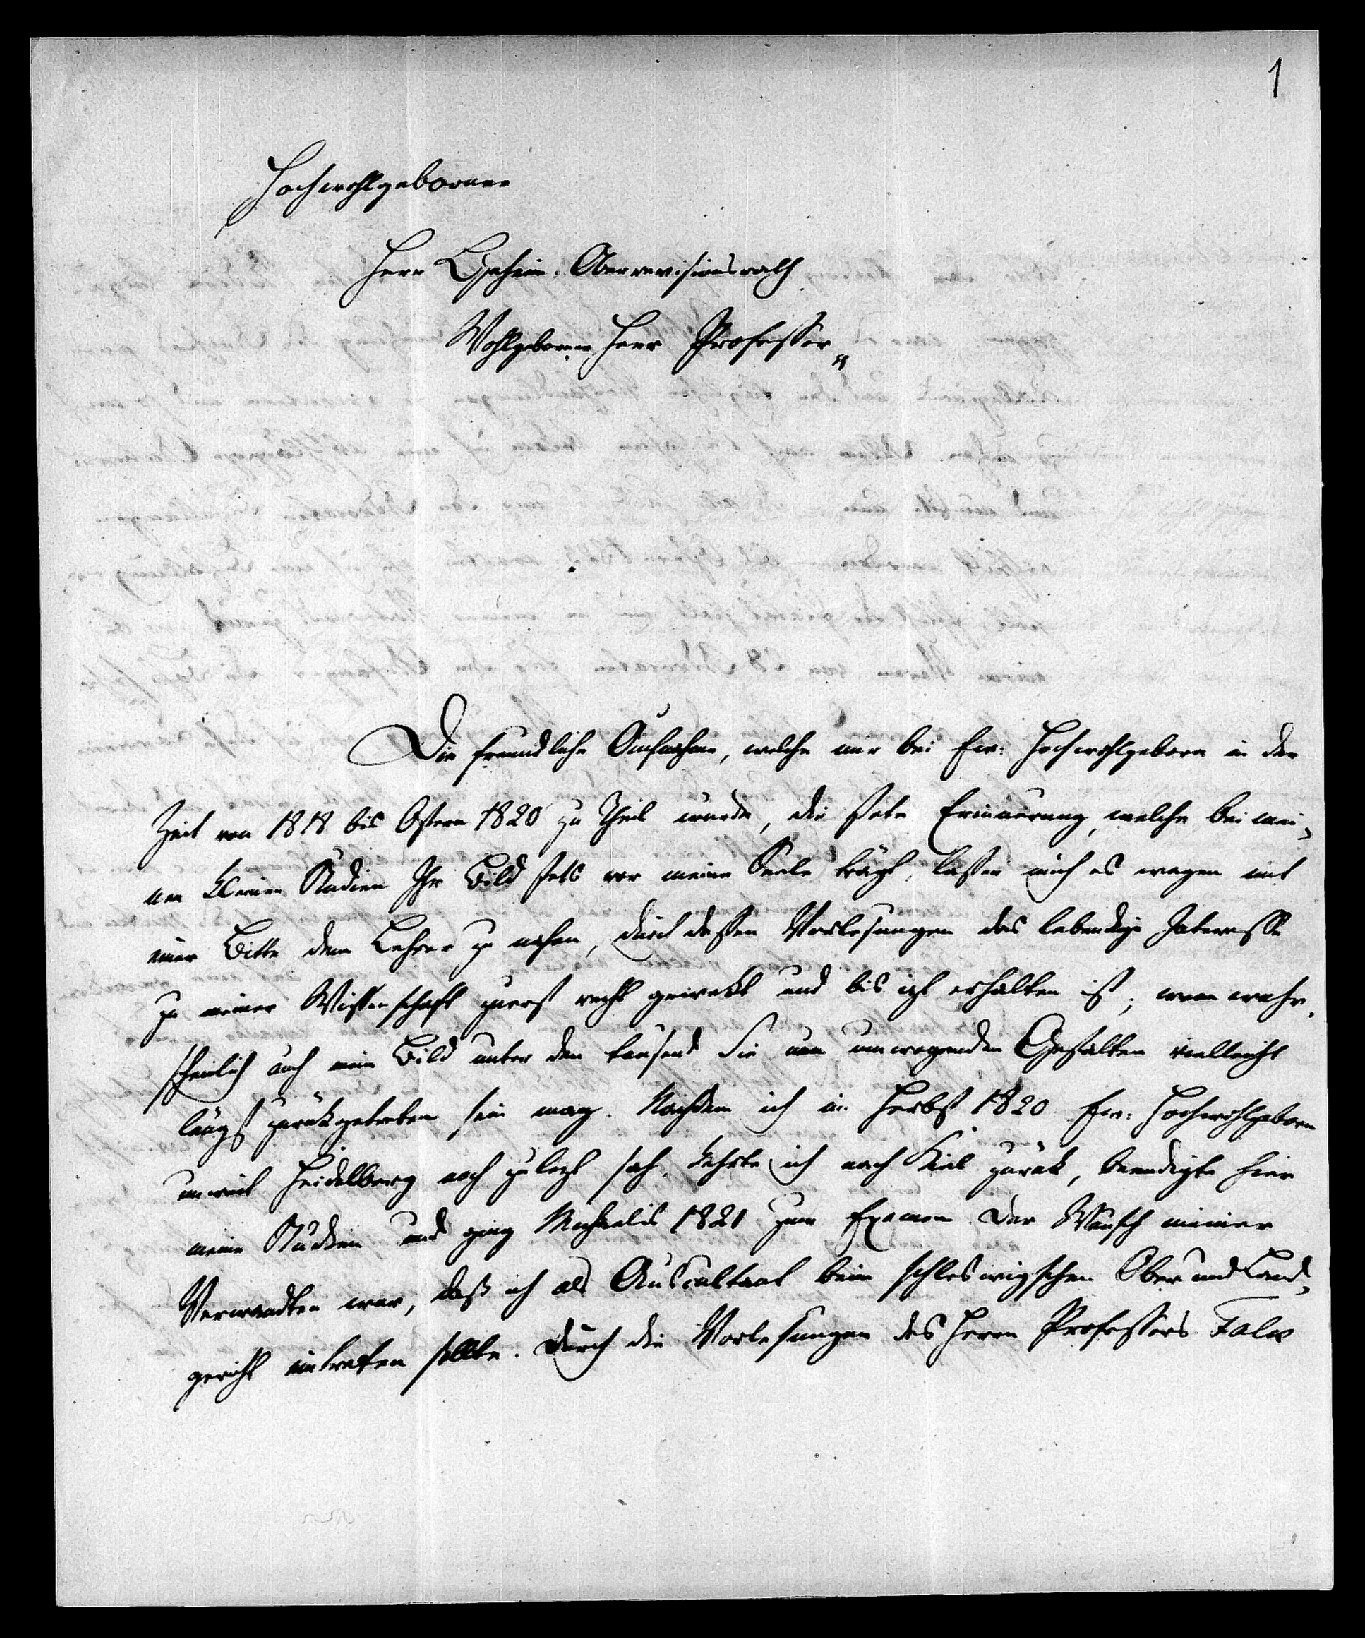 1
Hochwohlgeborner
Herr Geheim. Oberrevisionsrath
Wohlgeborner Herr Professor
Die freundliche Aufnahme, welche mir bei Ew: Hochwohlgeborn in der
Zeit von 1818 bis Ostern 1820 zu Theil wurde, die stete Erinnerung, welche bei mei-
nen Studien Ihr Bild stets vor meine Seele trägt, lassen mich es wagen mit
einer Bitte dem Lehrer zu nahen, durch dessen Vorlesungen das lebendige Interesse
zu meiner Wissenschaft zuerst recht geweckt und bis izt erhalten ist; wenn wahr-
scheinlich auch mein Bild unter den tausend Sie umwogenden Gestalten vielleicht
längst zurückgetreten sein mag. Nachdem ich im Herbst 1820 Ew: Hochwohlgeborn
unweit Heidelberg noch zulezt sah, kehrte ich nach Kiel zurück, beendigte hier
meine Studien und ging Michaelis 1821 zum Examen. Der Wunsch meiner
Verwandten war, daß ich als Auscultant beim schleswigschen Ober und Land-
gericht eintreten sollte. Durch die Vorlesungen des Herrn Professors Falck